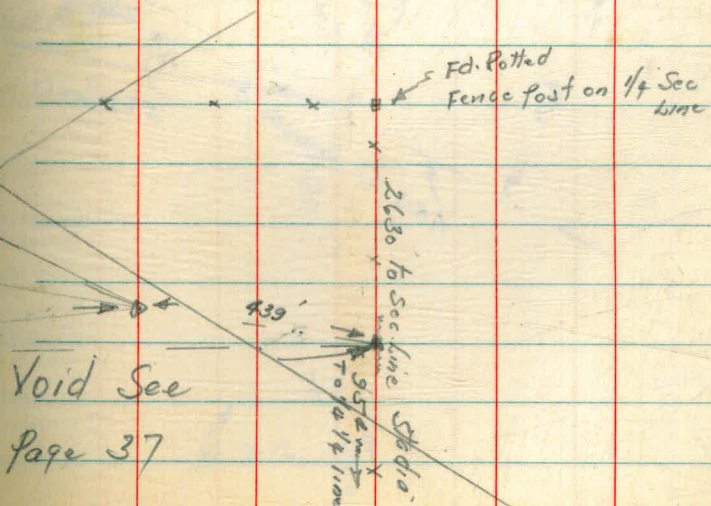 Fd. Rotted
Fence Post on 1/4 Sec
Line
2630 to Sec. Line Stadia
439'
To 1/4 1/4 line
Void See
Page 37